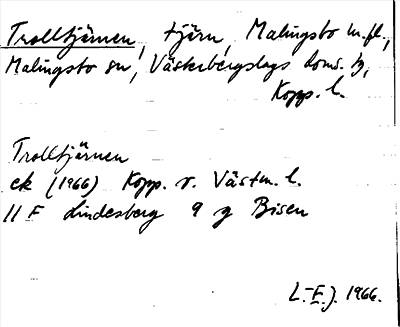 Trolltjärnen, tjärn, Malingsbo m.fl.,
Malingsbo sn, Västerbergslags doms. tg,
Kopp. l.
Trolltjärnen
ek (1966) Kopp. o. Västm. l.
11 F Lindesberg 9 g Bisen
L.E.J. 1966.